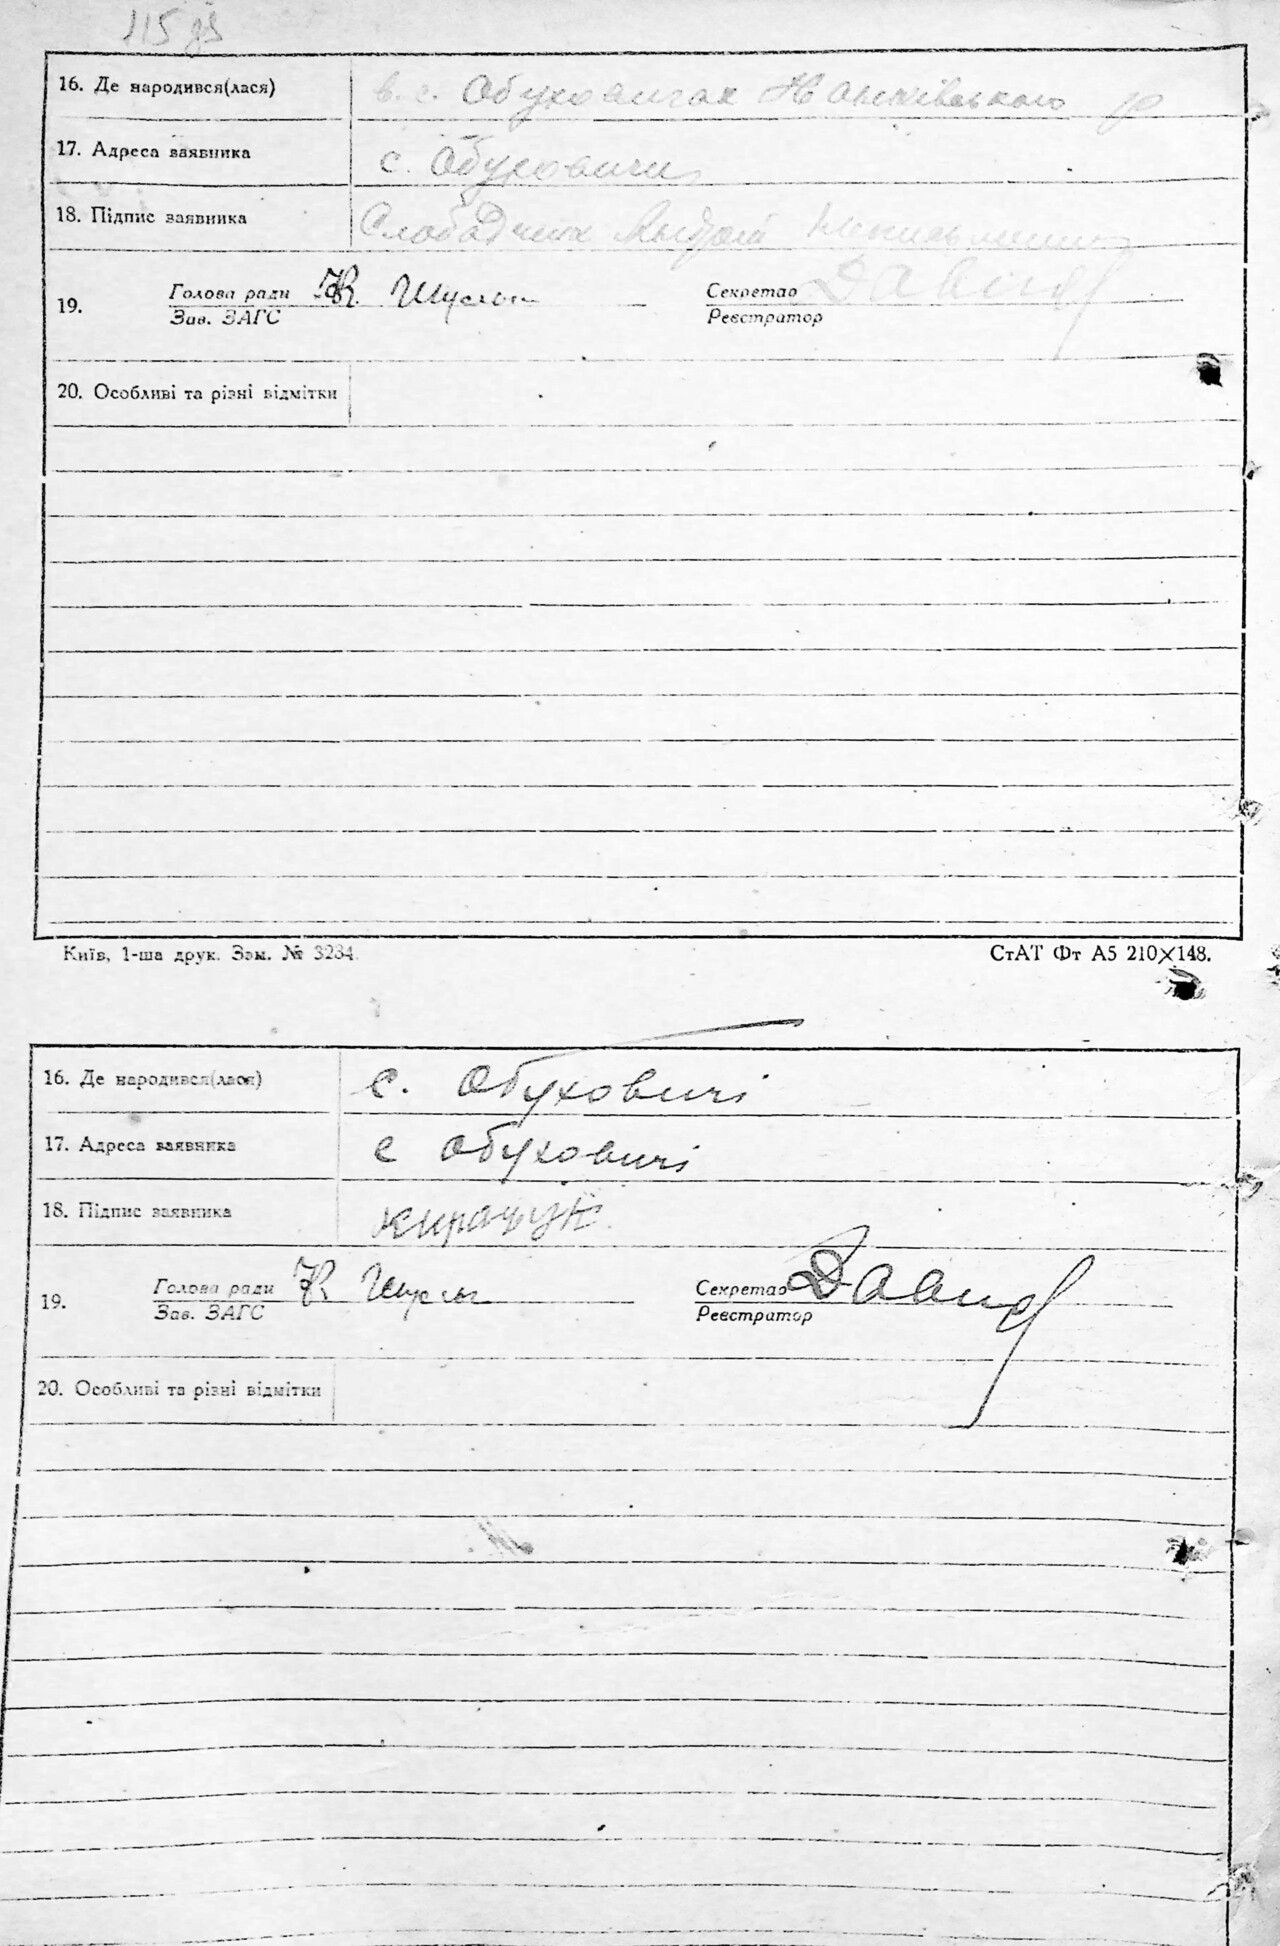 115 зв
16. Де народився(лася) в. с. Обуховичах Іванківського р
17. Адреса заявника с. Обуховичи
18. Підпис заявника Слободчик Андрій
19. Голова ради Секретар
Зав. ЗАГС Реєстратор
20. Особливі та різні відмітки
Київ, 1-ша друк. Зам. № 3234. СтАТ Фт А5 210×148.
16. Де народився(лася) с. Обуховичі
17. Адреса заявника с Обуховичі
18. Підпис заявника
19. Голова ради Секретар
Зав. ЗАГС Реєстратор
20. Особливі та різні відмітки